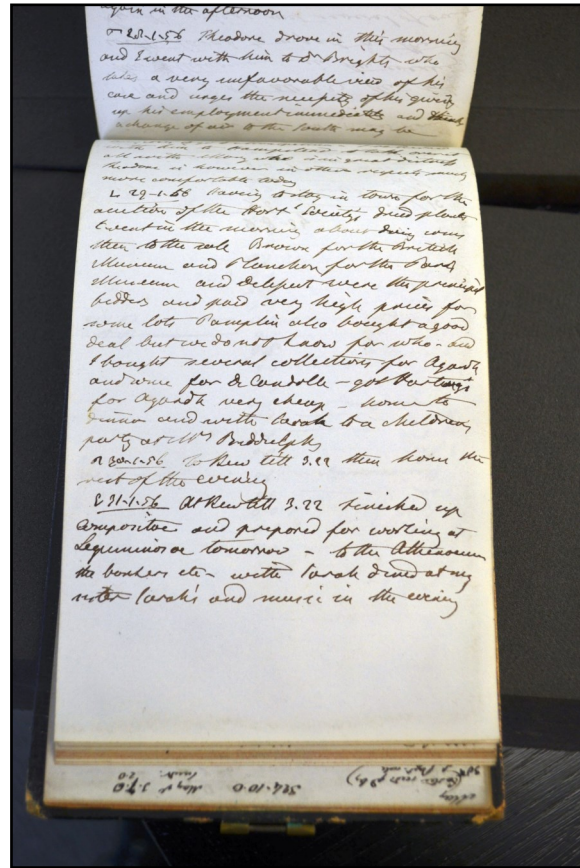 again in the afternoon
28-1-56 Theodore drove in this morning
and I went with him to Dr Bright's who
takes a very unfavorable view of his
case and urges the necessity of his giving
up his employment immediately and thinks
a change of air to the South may be
all with who is in great distress
Theodore is however in other respects much
more comfortable today
29-1-56 Having to stay in town for the
auction of the Hortl Society's dried plants
I went in the morning about doing
then to the sale Brown for the British
Museum and Planchon for the Paris
Museum and Delepert were the principal
bidders and paid very high prices for
some lots Pamplin also bought a good
deal but we do not know for who - and
I bought several collections for Agardh
and some for De Candolle - got Hartweg's
for Agardh very cheap - home to
dinner and with Sarah to a children's
party at Mrs Biddulph's
30-1-56 To Kew till 3.22 then home the
rest of the evening
31-1-56 At Kew till 3.22 finished up
Compositae and prepared for working at
Leguminosae tomorrow - to the Athenaeum
the bankers etc - with Sarah dined at my
sister Sarah's and music in the evening